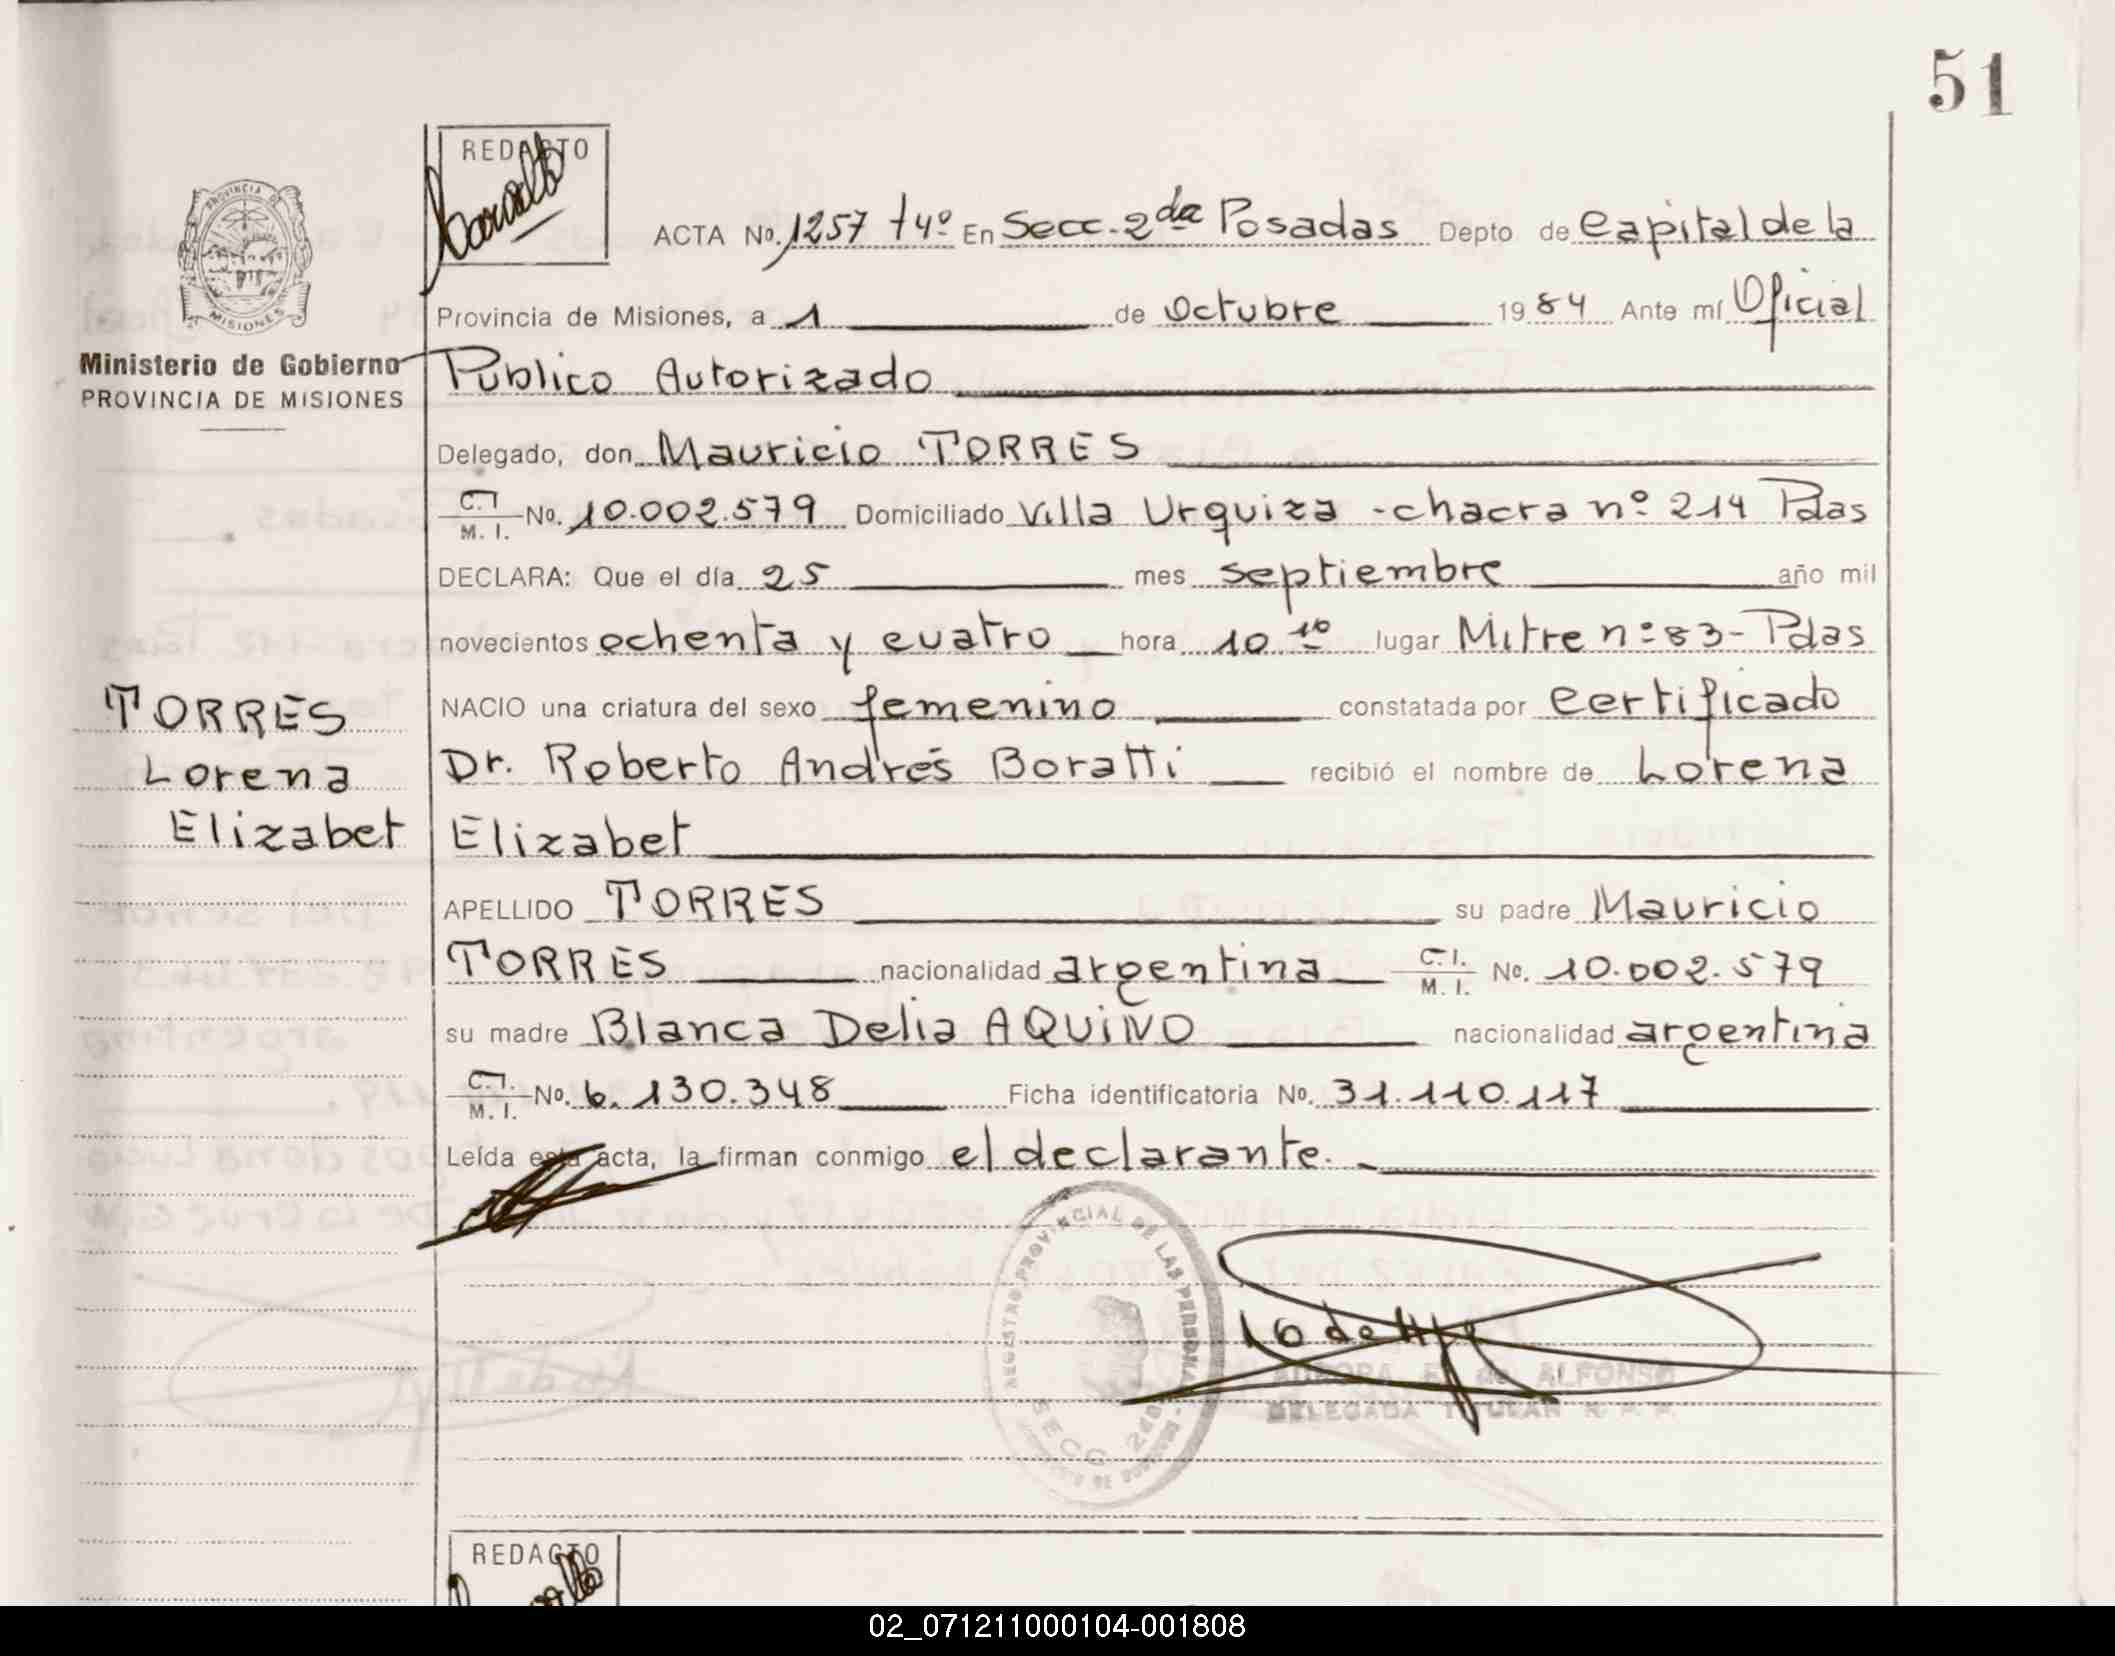 51
REDACTO
PROVINCIA DE
MISIONES
Ministerio de Gobierno
PROVINCIA DE MISIONES
ACTA No. 1257 t4º En Secc. 2da Posadas Depto de Capital de la
Provincia de Misiones, a 1 de Octubre 1984 Ante mí Oficial
Público Autorizado
Delegado, don Mauricio TORRES
C.I. M. I. No. 10.002.579 Domiciliado Villa Urquiza - chacra nº 214 Pdas
DECLARA: Que el día 25 mes septiembre año mil
novecientos ochenta y cuatro hora 10 10 lugar Mitre nº 83 - Pdas
NACIO una criatura del sexo femenino constatada por certificado
Dr. Roberto Andrés Boratti recibió el nombre de Lorena
Elizabet
TORRES
Lorena
Elizabet
APELLIDO TORRES su padre Mauricio
TORRES nacionalidad argentina C.I. M. I. No. 10.002.579
su madre Blanca Delia AQUINO nacionalidad argentina
C.I. M. I. No. 6.130.348 Ficha identificatoria No. 31.110.117
Leída esta acta, la firman conmigo el declarante.
REGISTRO PROVINCIAL DE LAS PERSONAS
SECC. 2da
DE ALFONSO
DELEGADA TITULAR R. P. P.
REDACTO
02_071211000104-001808